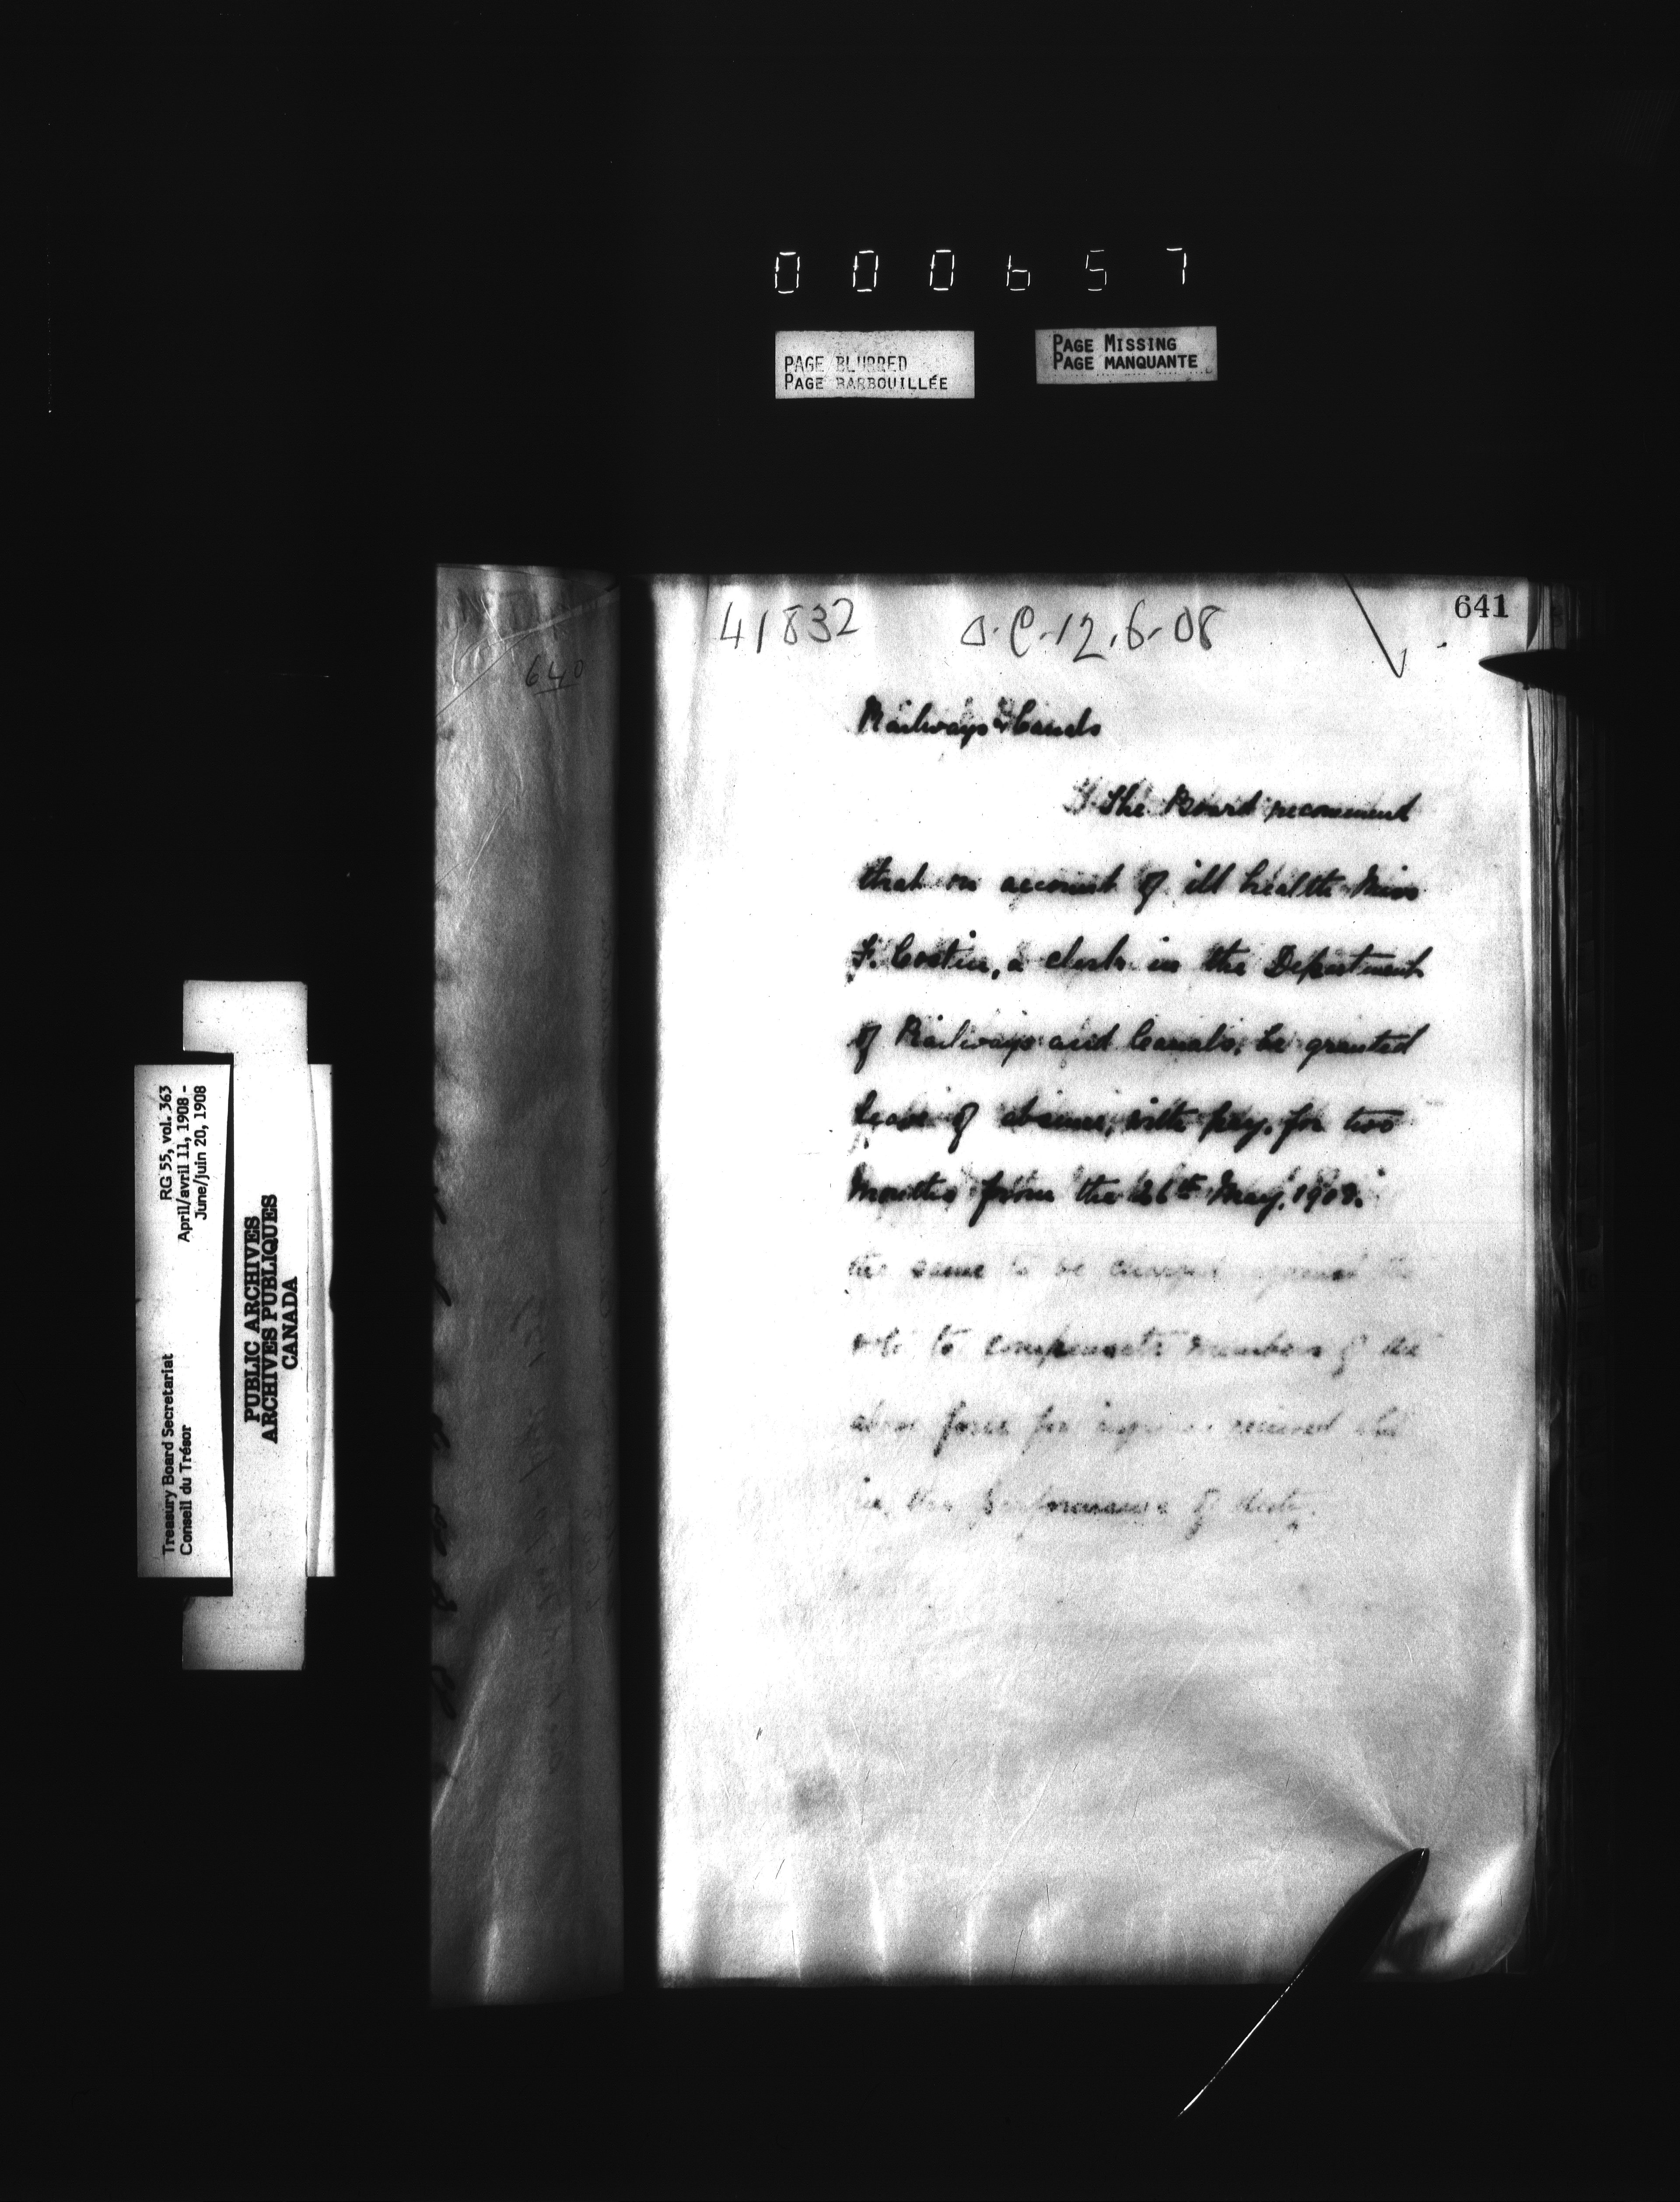 000657
PAGE BLURRED
PAGE BARBOUILLÉE
PAGE MISSING
PAGE MANQUANTE
641
640
41832 O.C. 12.6-08
Railways & Canals
The Board recommend
that on account of ill health Miss
F. Costin, a clerk in the Department
of Railways and Canals, be granted
leave of absence, with pay, for two
months from the 26th May, 1908.
the same to be charged against the
vote to compensate members of the
above force for injuries received
in the performance of duty.
RG 55, vol. 363
April/avril 11, 1908 -
June/juin 20, 1908
Treasury Board Secretariat
Conseil du Trésor
PUBLIC ARCHIVES
ARCHIVES PUBLIQUES
CANADA